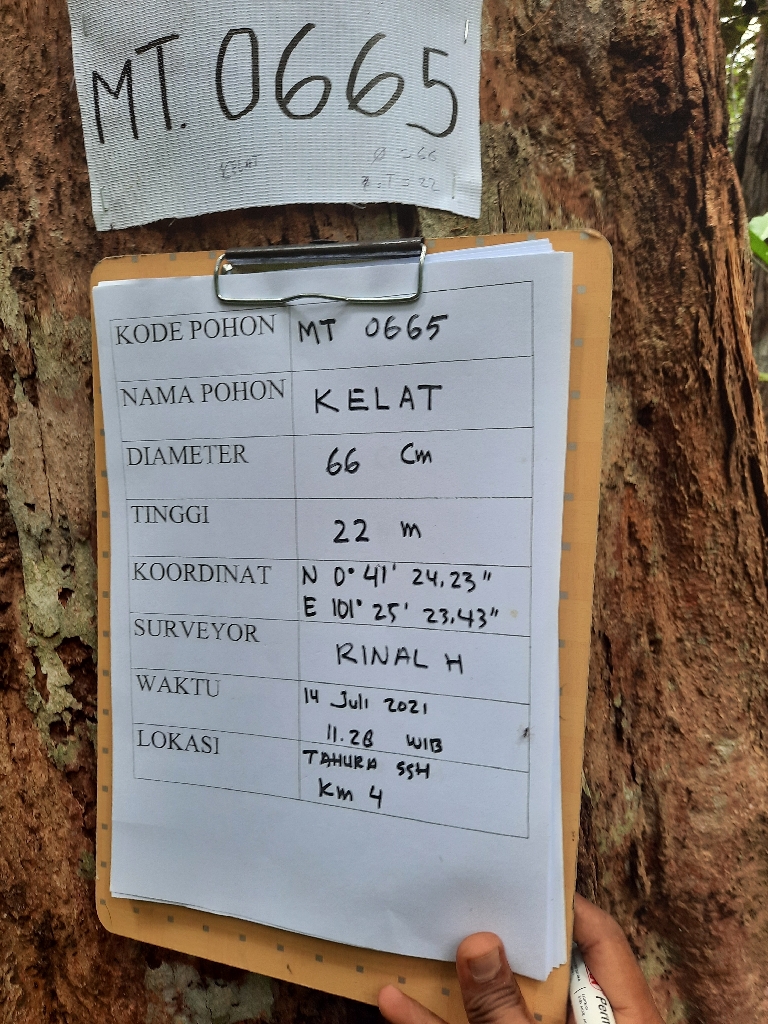 MT. 0665
KELAT
Ø = 66
T = 22
KODE POHON MT 0665
NAMA POHON KELAT
DIAMETER 66 Cm
TINGGI 22 m
KOORDINAT N 0° 41' 24,23"
E 101° 25' 23,43"
SURVEYOR RINAL H
WAKTU 14 Juli 2021
11.28 WIB
LOKASI TAHURA SSH
Km 4